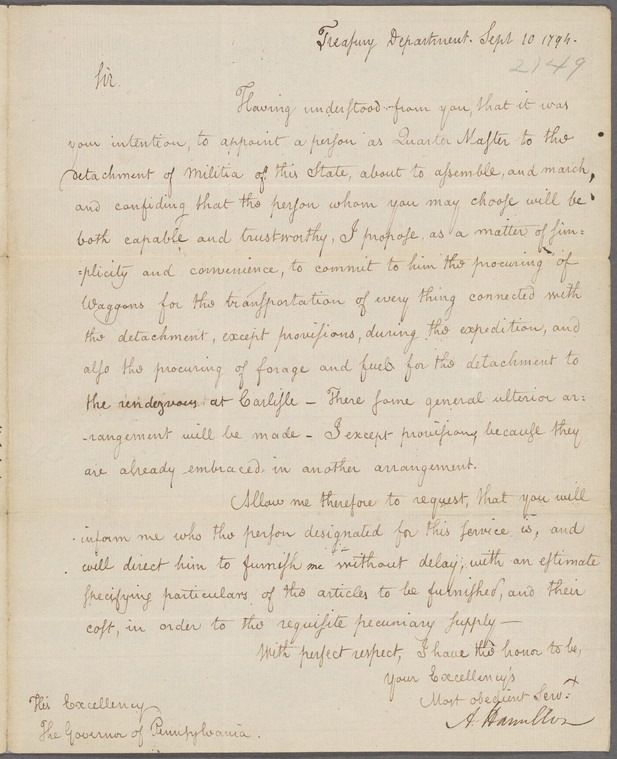 Treasury Department. Sept 10 1794.
2149
Sir.
Having understood from you, that it was
your intention, to appoint a person as Quarter Master to the
detachment of Militia of this State, about to assemble, and march,
and confiding that the person whom you may choose will be
both capable and trustworthy, I propose, as a matter of sim=
=plicity and convenience, to commit to him the procuring of
Waggons for the transportation of every thing connected with
the detachment, except provisions, during the expedition, and
also the procuring of forage and fuel for the detachment to
the rendezvous at Carlisle — There some general ulterior ar=
-rangement will be made — I except provisions, because they
are already embraced in another arrangement.
Allow me therefore to request, that you will
inform me who the person designated for this service is, and
will direct him to furnish me without delay, with an estimate
specifying particulars of the articles to be furnished, and their
cost, in order to the requisite pecuniary supply —
With perfect respect, I have the honor to be,
Your Excellency's
Most obedient Servt
A. Hamilton
His Excellency
The Governor of Pennsylvania.